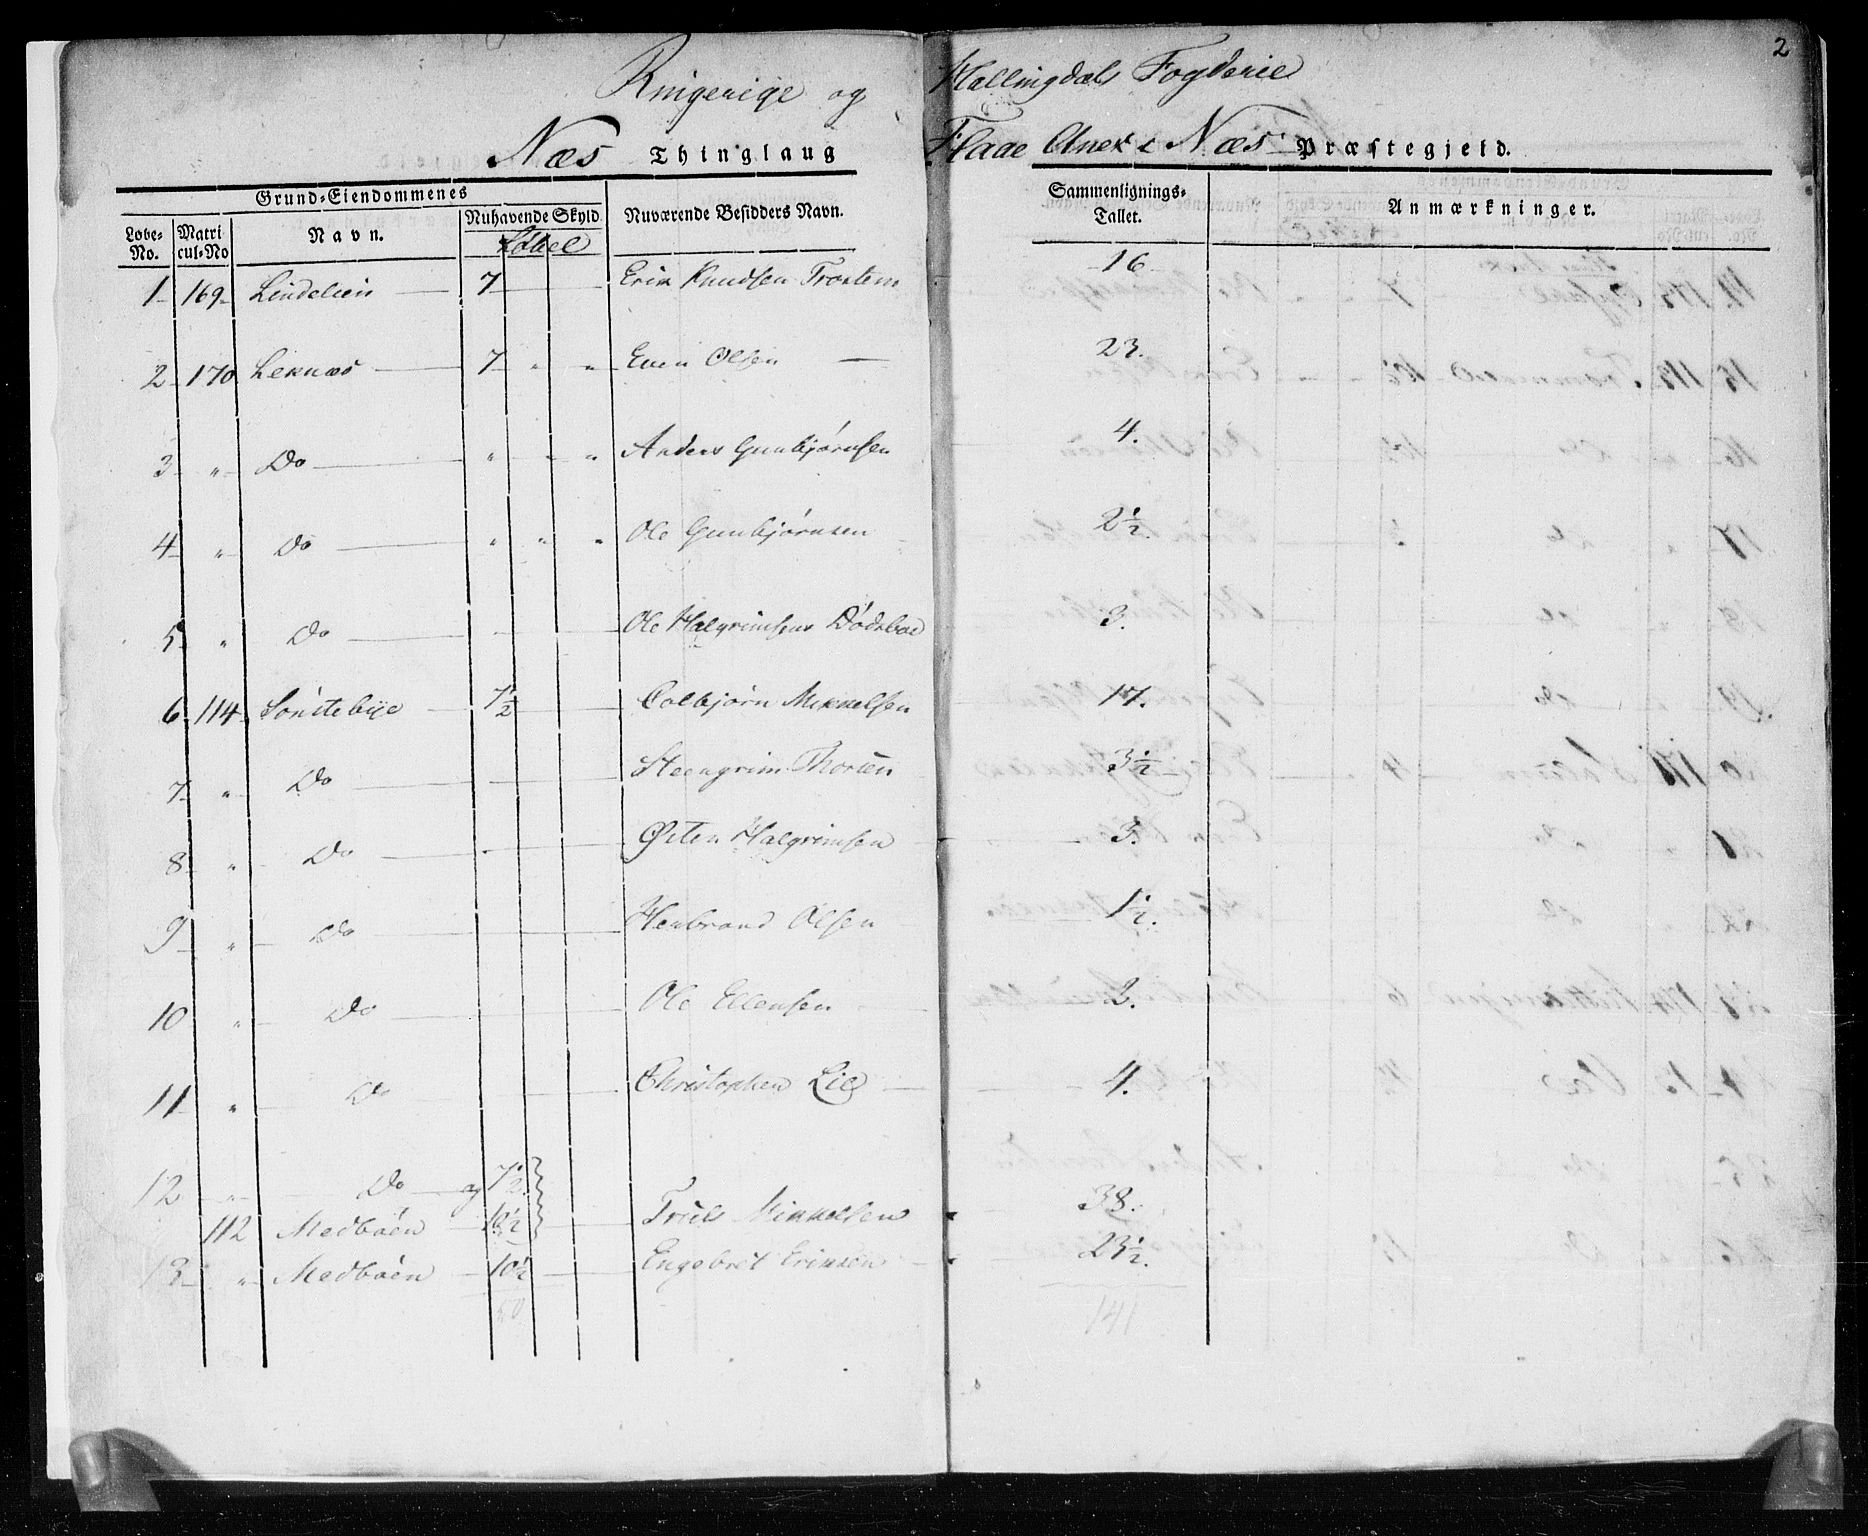 2
Ringerige og Hallingdals Fogderie
Næs Thinglaug Flaae Anex i Næs Præstegjeld.
Grund-Eiendommenes
Løbe-No. Matricul-No Navn. Nuhavende Skyld Nuværende Besidders Navn. Sammenlignings-Tallet. Anmærkninger.
1 169 Lindelien 7 Erik Knudsen Trostem 16
2 170 Leknæs 7 " " Even Olsen 23.
3 " Do " " " Anders Gunbjørnsen 4.
4 " Do " " " Ole Gunbjørnsen 2 1/2.
5 " Do Ole Halgrimsens Dødsboe 3.
6 114 Sønstebye 7 1/2 Colbjørn Mikkelsen 17.
7 " Do Steengrim Thorsen 3 1/2
8 " Do Østen Halgrimsen 3.
9 " Do Herbrand Olsen 1 1/2.
10 " Do Ole Ellensen 2.
11 " Do Christopher Lie 4.
12 " Do og 7 1/2
112 Medbøen 10 1/2 Truls Mikkelsen 38.
13 " Medbøen 10 1/2 Engebret Eriksen 23 1/2.
50 141